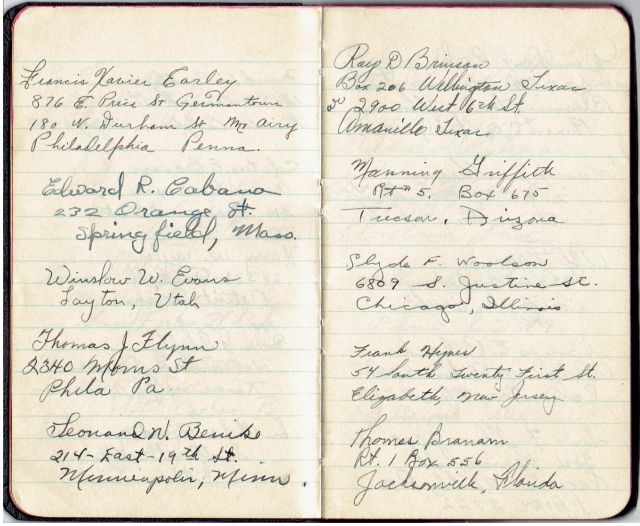 Francis Xavier Earley
876 E Price St Germantown
180 N. Durham St Mt Airy
Philadelphia Penna.
Edward R. Cabana
232 Orange St.
Springfield, Mass.
Winslow W. Evans
Layton, Utah
Thomas J Flynn
2340 Morris St
Phila Pa.
Leonard W. Benike
214-East-19th St.
Minneapolis, Minn.
Ray D Brinson
Box 206 Wellington Texas
2900 West 6th St.
Amarillo Texas
Manning Griffith
Rt # 5. Box 675
Tucson, Arizona
Clyde F. Woolson
6809 S. Justine St.
Chicago, Illinois
Frank Hynes
54 South Twenty First St.
Elizabeth, New Jersey
Thomas Branam
Rt. 1 Box 556
Jacksonville, Florida